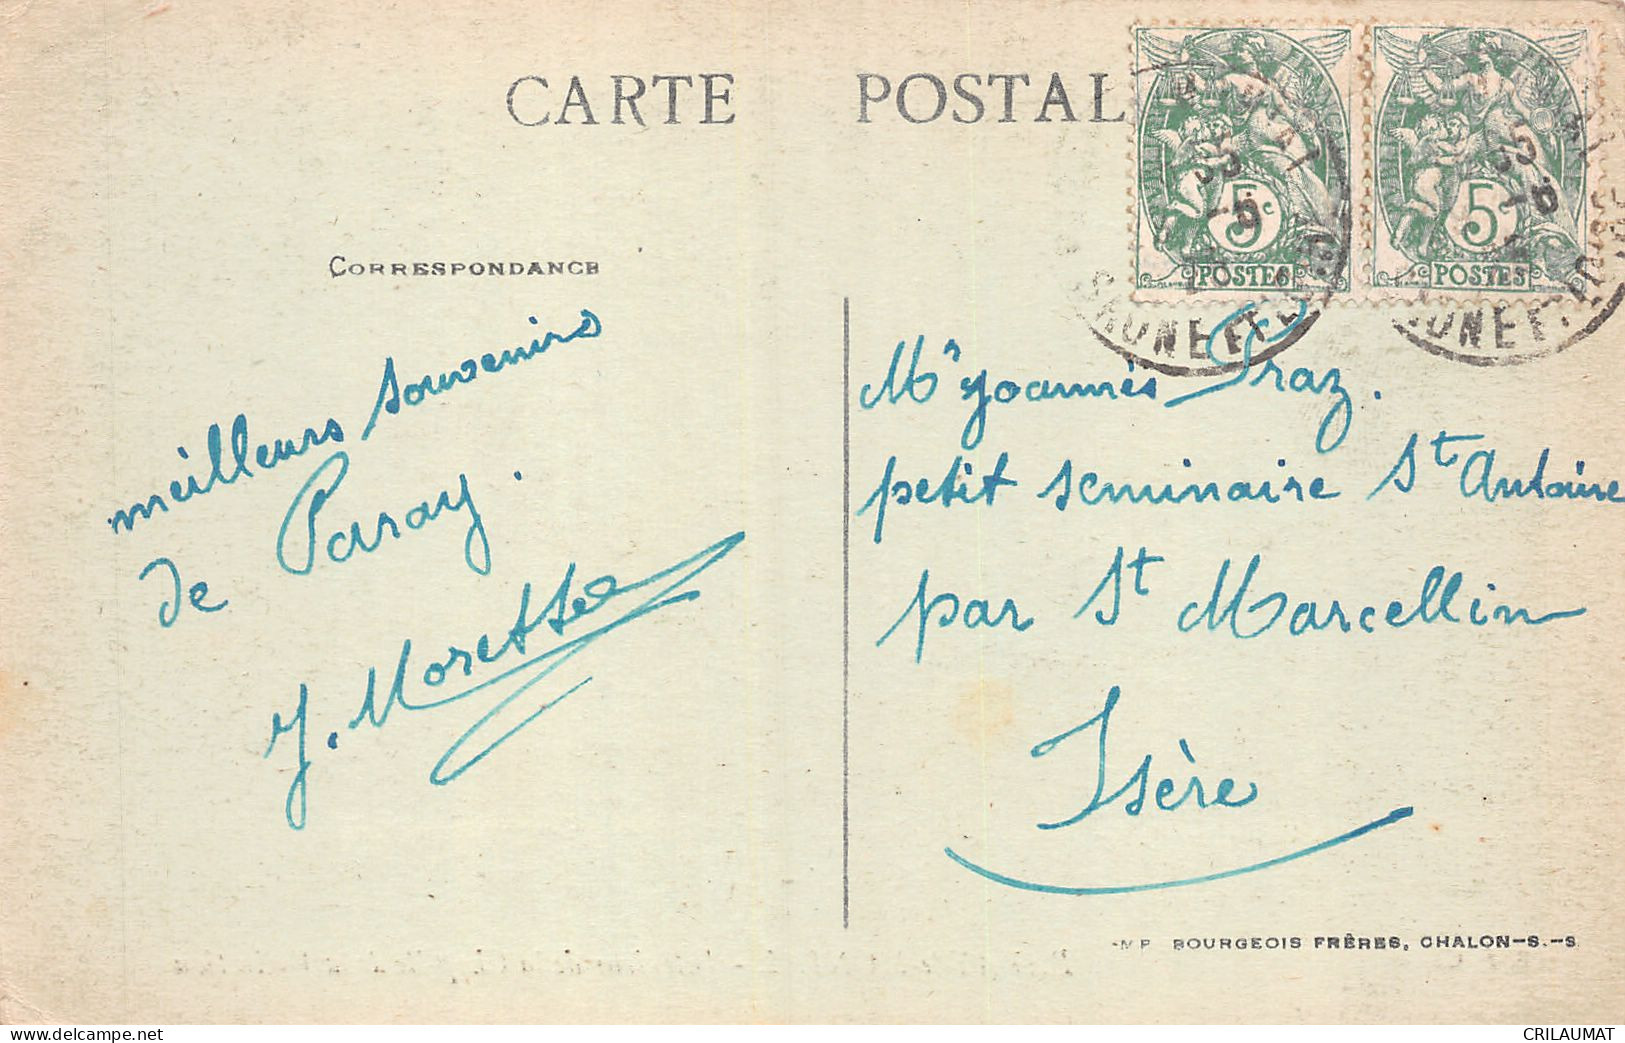 CARTE POSTAL
5c
POSTES
5
POSTES
CORRESPONDANCE
meilleurs souvenirs
de Paray.
Mr Joannès Praz.
petit seminaire St Antoine
par St Marcellin
Isère
BOURGEOIS FRÈRES, CHALON-S.-S
www.delcampe.net
CRILAUMAT